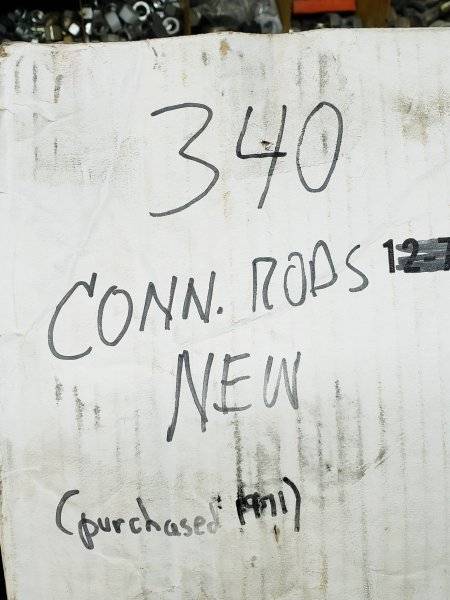 340
CONN. RODS 12-7
NEW
(purchased 1971)